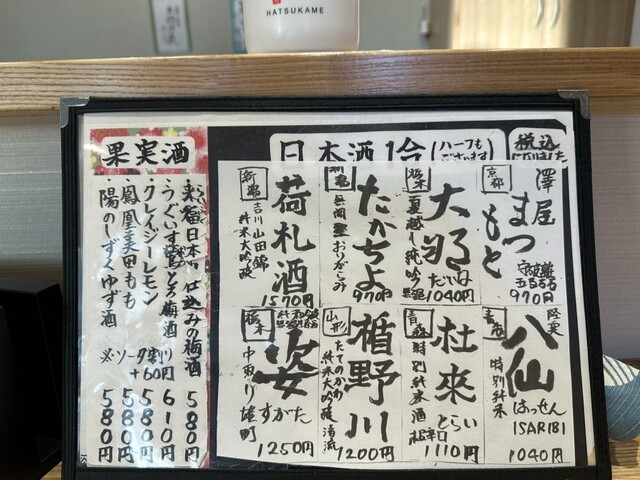 HATSUKAME
日本酒1合
(ハーフも
ございます)
税込
になりました
京都
澤屋
まつもと
守破離
五百万石
970円
栃木
大那
夏越し純吟
たいな
1040円
新潟
たかちよ
無調整おりがらみ
970円
新潟
荷札酒
吉川山田錦
純米大吟醸
1570円
青森
陸奥
八仙
はっせん
ISARIBI
特別純米
1040円
青森
杜來
とらい
特別純米酒
1110円
山形
楯野川
たてのかわ
純米大吟醸 清流
1200円
栃木
姿
すがた
中取り雄町
1250円
果実酒
・来福日本酒仕込みの梅酒 580円
・うぐいすとろ梅酒 610円
・クレイジーレモン 580円
・鳳凰美田もも 580円
・陽のしずくゆず酒 580円
※ソーダ割り
+60円